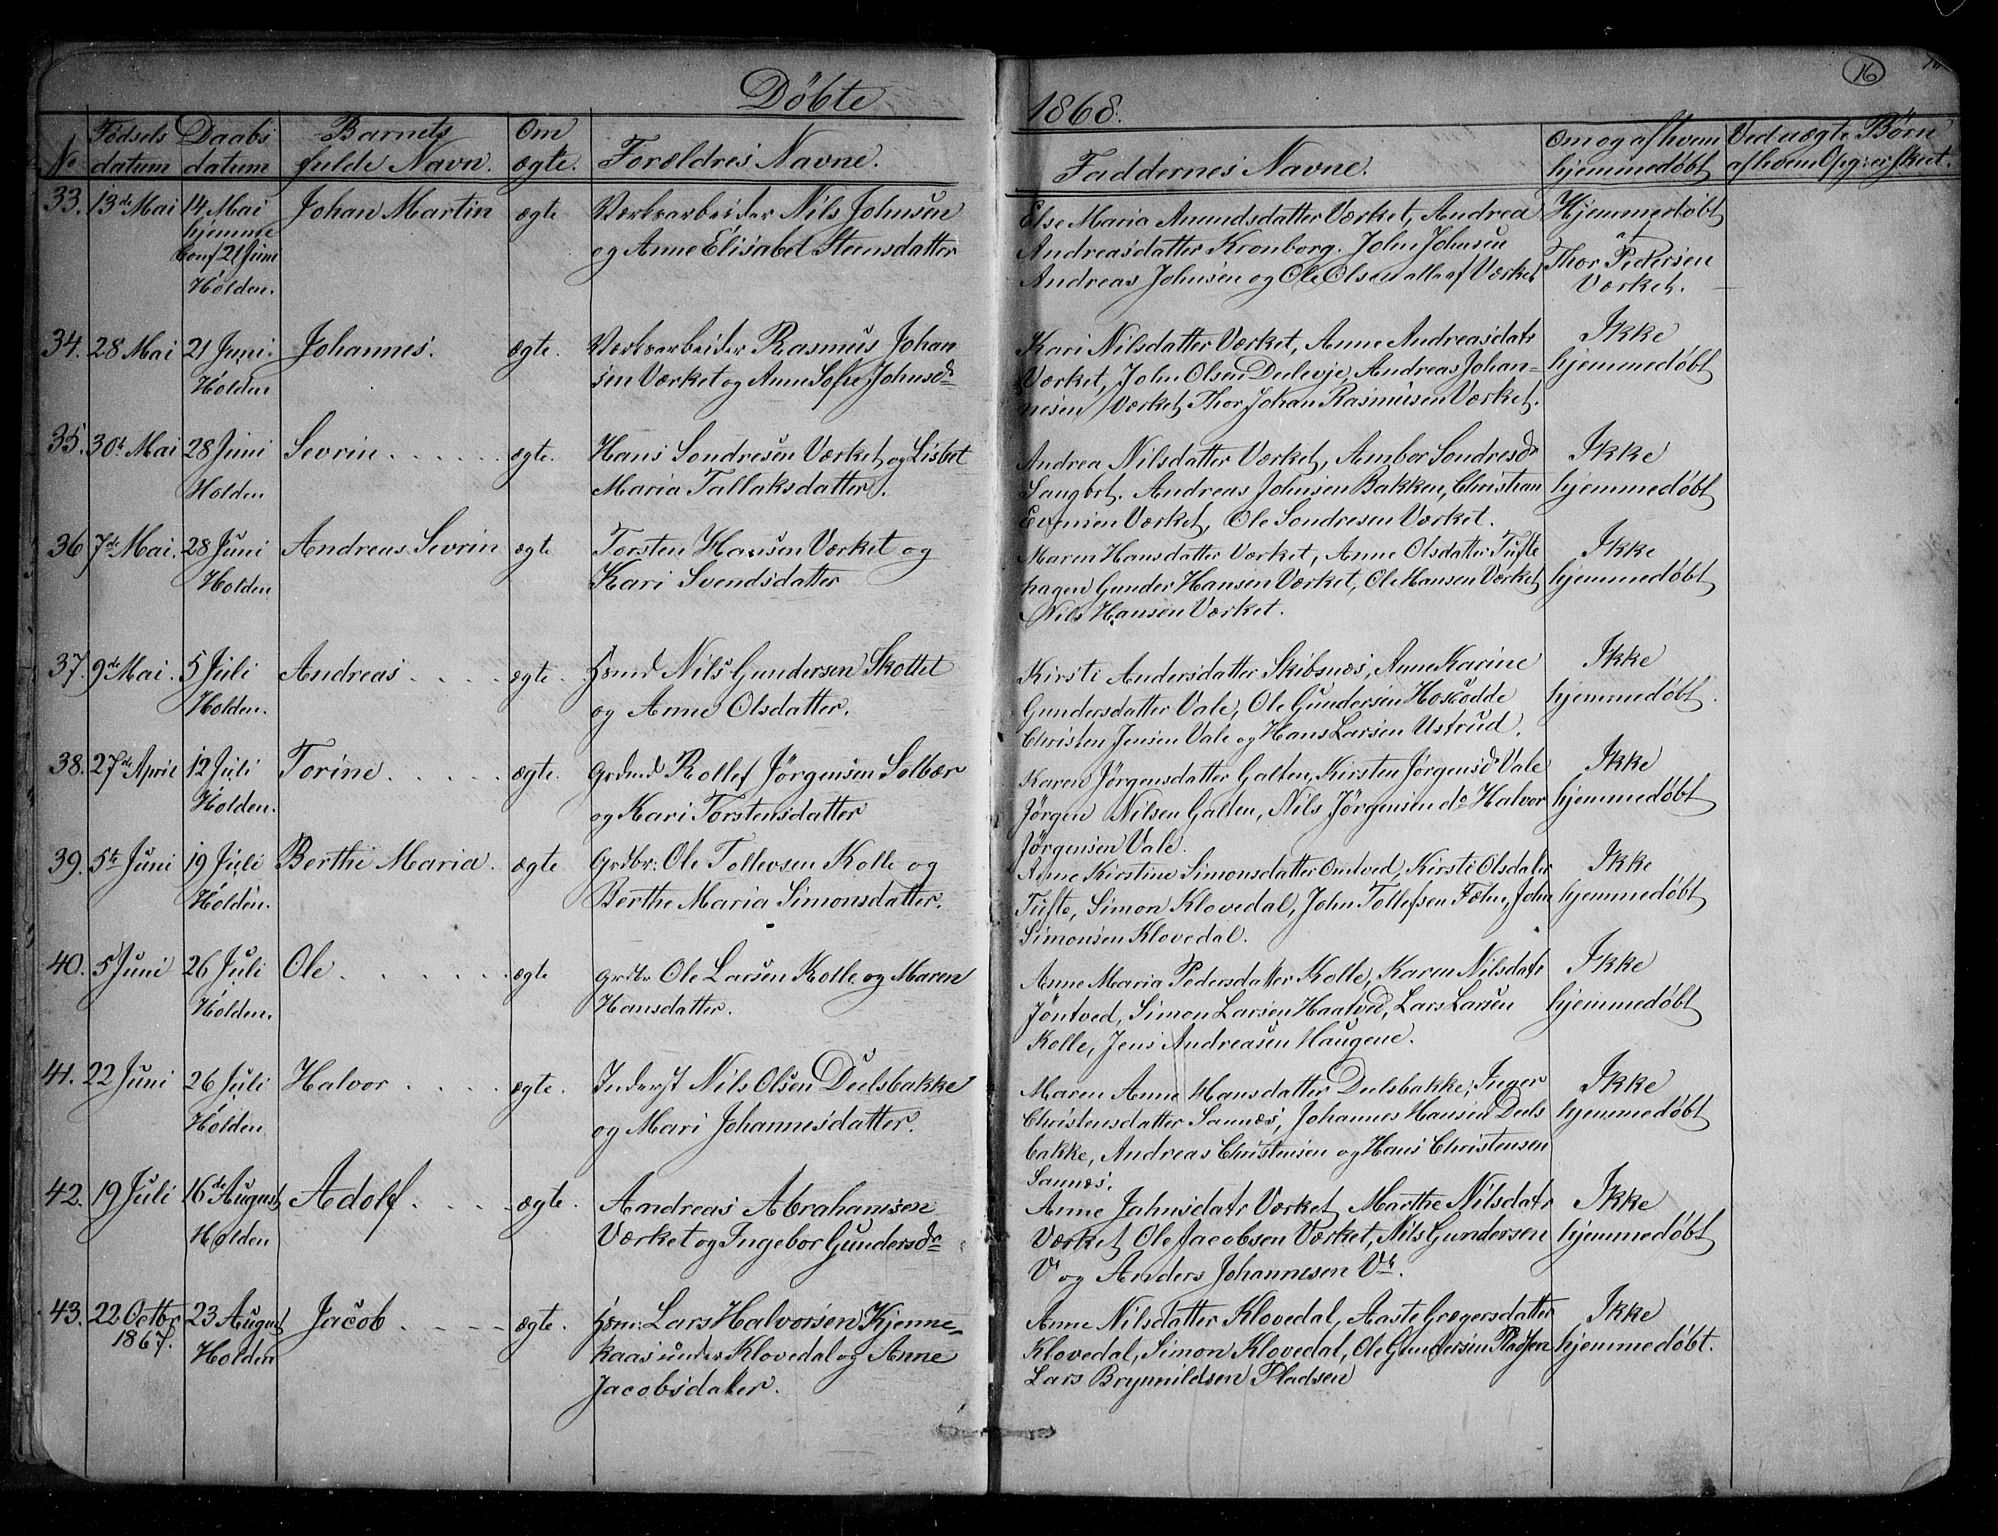 16
Døbte
1868.
No
Fødsels datum
Daabs datum
Barnets fulde Navn.
Om ægte.
Forældres Navne.
Faddernes Navne.
Om og af hvem hjemmedøbt
Ved uægte Børn af hvem Opg: er skeet.
33. 13de Mai 14 Mai Johan Martin ægte Værksarbeider Nils Johnsen
hjemme
Conf 21 Juni og Anne Elisabet Steensdatter
Holden.
Else Maria Amundsdatter Værket, Andrea Hjemmedøbt
Andreasdatter Kronborg. John Johnsen af Thor Pedersen
Andreas Johnsen og Ole Olsen alle af Værket Værket.
34. 28 Mai 21 Juni Johannes. ægte. Værksarbeider Rasmus Johan
Holden sen Værket og Anne Sofie Johnsd.
Kari Nilsdatter Værket, Anne Andreasdatr Ikke
Værket, John Olsen Deelevje, Andreas Johan- hjemmedøbt
nesen Værket, Thor Johan Rasmusen Værket.
35. 30d Mai 28 Juni Sevrin ægte. Hans Sondresen Værket og Lisbet
Holden Maria Tallaksdatter.
Andrea Nilsdatter Værket, Ambor Sondresdr Ikke
Langbet. Andreas Johnsen Bakken, Christian hjemmedøbt
Evensen Værket, Ole Sondresen Værket.
36 7de Mai. 28 Juni Andreas Sevrin ægte Torsten Hansen Værket og
Holden Kari Svendsdatter
Maren Hansdatter Værket, Anne Olsdatter Tufte Ikke
hagen Gunder Hansen Værket, Ole Hansen Værket hjemmedøbt
Nils Hansen Værket.
37. 9de Mai. 5 Juli Andreas ægte. Hsmd Nils Gundersen Skottet
Holden. og Anne Olsdatter.
Kirsti Andersdatter Skibsnæs, Anne Karine Ikke
Gundersdatter Vale, Ole Gundersen hjemmedøbt.
Christen Jensen Vale og Hans Larsen Ustrud.
38. 27de April 12 Juli Torine ægte. Grdmd Rollef Jørgensen Solbær
Holden. og Kari Torstensdatter
Karen Jørgensdatter Galten, Kirsten Jørgensd Vale Ikke
Jørgen Nilsen Galten, Nils Jørgensen do Halvor hjemmedøbt
Jørgensen Vale.
39. 5te Juni 19 Juli Berthe Maria. ægte Grdbr: Ole Tollevsen Kolle og
Holden. Berthe Maria Simonsdatter.
Anne Kirstine Simonsdatter Omtved, Kirsti Olsdater Ikke
Tufte, Simon Klovedal, John Tollefsen Fæhn, John hjemmedøbt
Simonsen Klovedal.
40. 5 Juni 26 Juli Ole ægte grdbr Ole Larsen Kolle og Maren
Holden. Hansdatter.
Anne Maria Pedersdatter Kolle, Karen Nilsdatr Ikke
Jøntved, Simon Larsen Haatved, Lars Larsen hjemmedøbt
Kolle, Jens Andreasen Haugene.
41. 22 Juni 26 Juli Halvor ægte. Inderst Nils Olsen Deelsbakke
Holden og Mari Johannesdatter.
Maren Anne Hansdatter Deelsbakke, Inger Ikke
Christensdatter Sannes, Johannes Hansen Deels hjemmedøbt
bakke, Andreas Christensen og Hans Christensen
Sannes.
42. 19 Juli 16de August Adolf ægte. Andreas Abrahamsen
Holden Værket og Ingebor Gundersdr
Anne Jahnsdatr Værket, Marthe Nilsdatr Ikke
Værket, Ole Jacobsen Værket, Nils Gundersen hjemmedøbt
Vr og Anders Johannesen Vrk.
43. 22 Octbr 23 August Jacob ægte. Hsm: Lars Halvorsen Kjenne-
1867. Holden kaas under Klovedal og Anne
Jacobsdater.
Anne Nilsdatter Klovedal, Aaste Grægersdatter Ikke
Klovedal, Simon Klovedal, Ole Gundersen Pladsen hjemmedøbt.
Lars Brynnildsen Pladsen